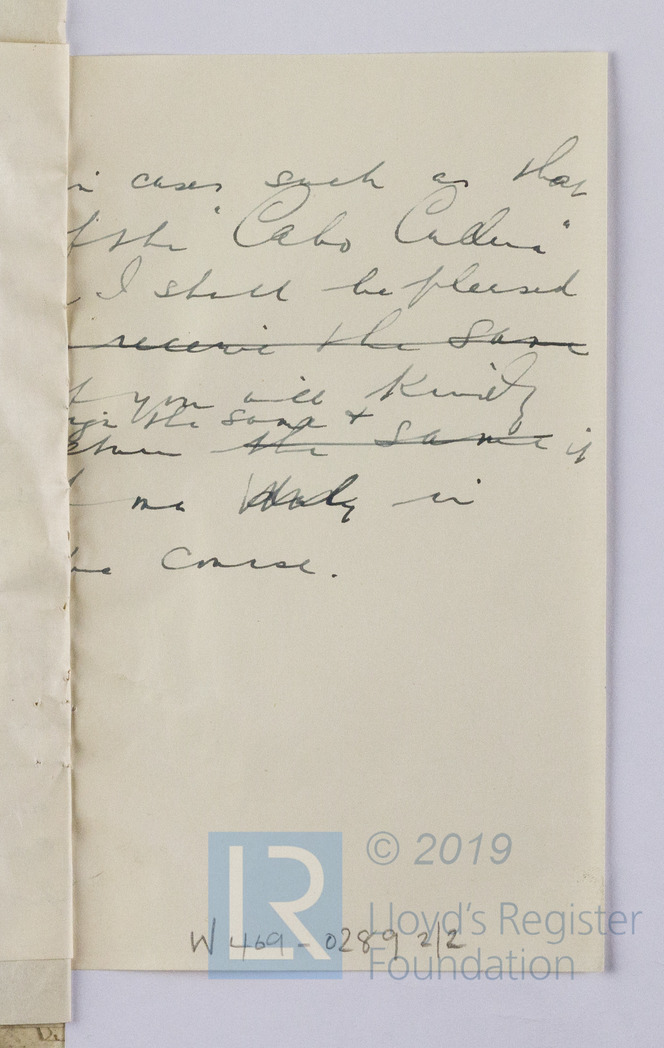 in cases such as that
of the "Cabo Cullera"
I shall be pleased
receive the same
if you will kindly
sign the same &
return the same if
me in
due course.
© 2019
LR
Lloyd's Register
Foundation
W469-0289 2/2